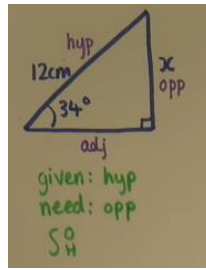 hyp
12cm
x
opp
34°
adj
given: hyp
need: opp
S O H